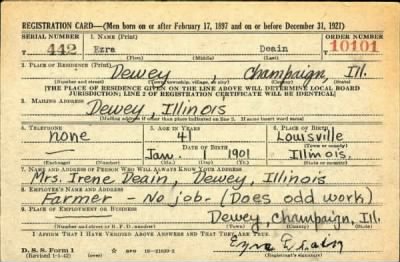 REGISTRATION CARD—(Men born on or after February 17, 1897 and on or before December 31, 1921)
SERIAL NUMBER 1. NAME (Print) ORDER NUMBER
T 442 Ezra Deain T 10101
(First) (Middle) (Last)
2. PLACE OF RESIDENCE (Print)
Dewey, Champaign, Ill.
(Number and street) (Town, township, village, or city) (County) (State)
[THE PLACE OF RESIDENCE GIVEN ON THE LINE ABOVE WILL DETERMINE LOCAL BOARD
JURISDICTION; LINE 2 OF REGISTRATION CERTIFICATE WILL BE IDENTICAL]
3. MAILING ADDRESS
Dewey, Illinois
[Mailing address if other than place indicated on line 2. If same insert word same]
4. TELEPHONE 5. AGE IN YEARS 6. PLACE OF BIRTH
none 41 Louisville
DATE OF BIRTH (Town or county)
Jan. 1 1901 Illinois.
(Exchange) (Number) (Mo.) (Day) (Yr.) (State or country)
7. NAME AND ADDRESS OF PERSON WHO WILL ALWAYS KNOW YOUR ADDRESS
Mrs. Irene Deain, Dewey, Illinois
8. EMPLOYER'S NAME AND ADDRESS
Farmer - No job- (Does odd work)
9. PLACE OF EMPLOYMENT OR BUSINESS
Dewey, Champaign, Ill.
(Number and street or R. F. D. number) (Town) (County) (State)
I AFFIRM THAT I HAVE VERIFIED ABOVE ANSWERS AND THAT THEY ARE TRUE.
Ezra Deain
D. S. S. Form 1
(Revised 1-1-42) (over) (Registrant's signature)